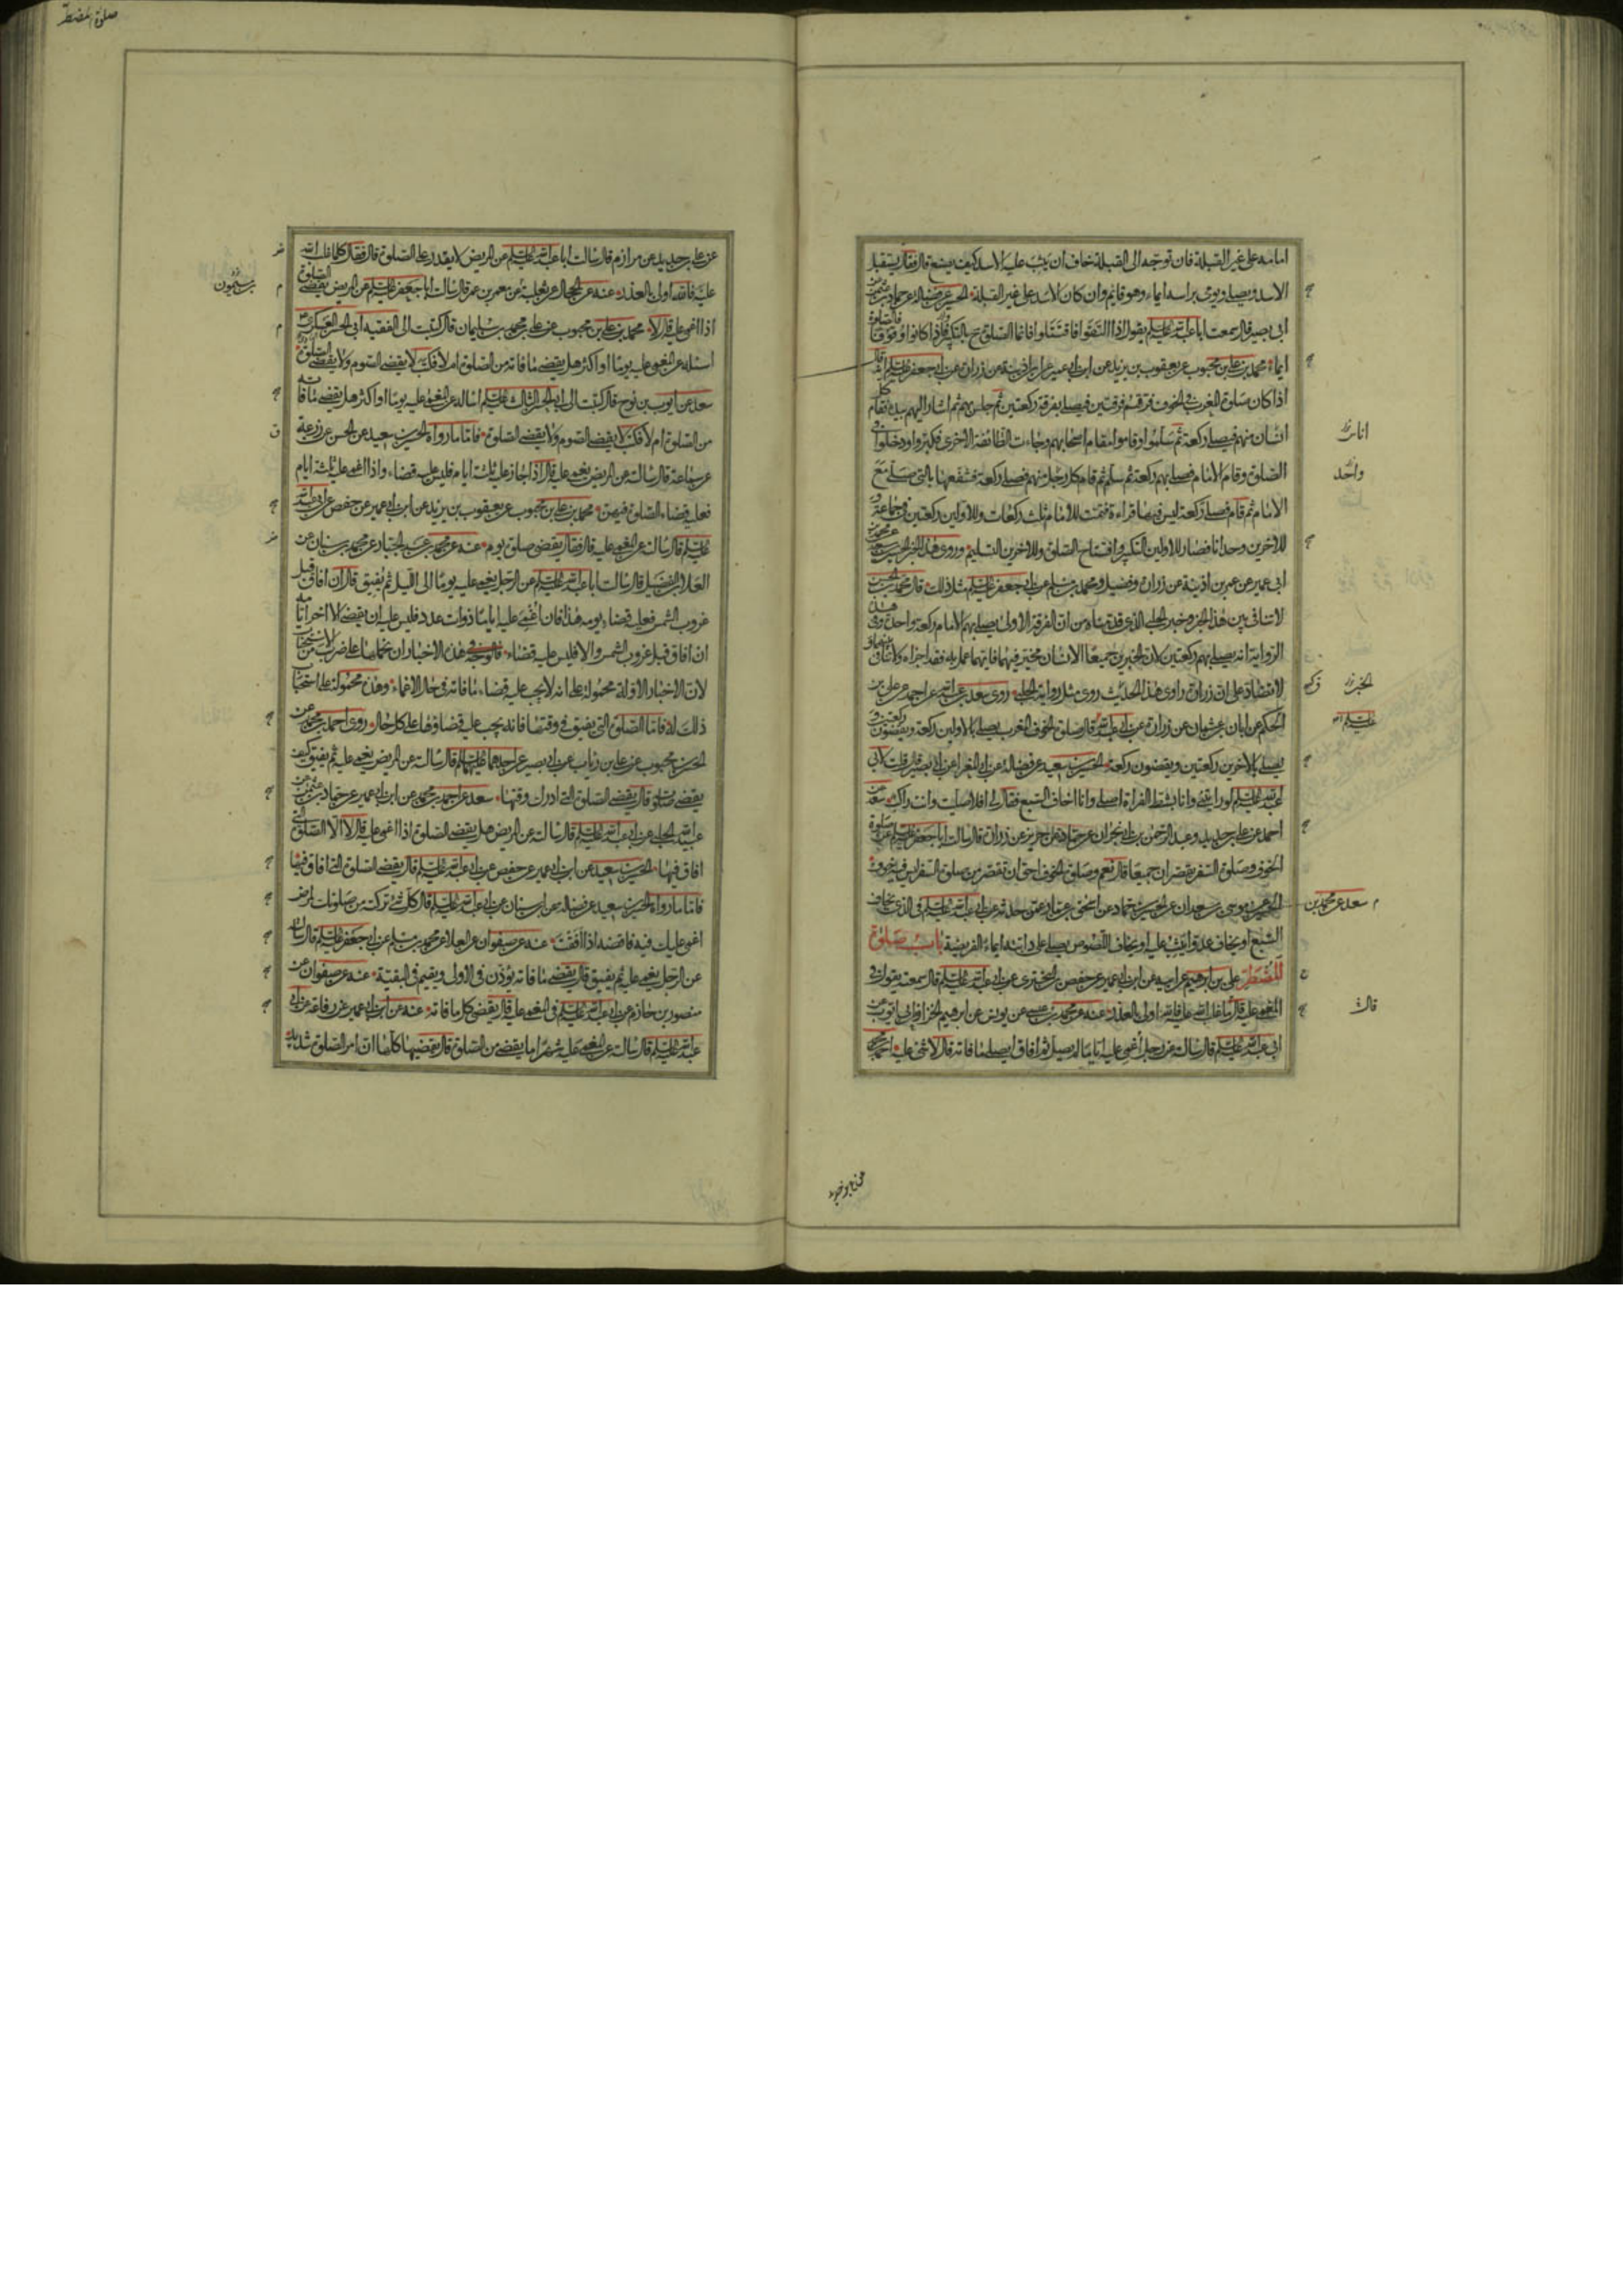 امامه على غير القبلة فان توجه الى القبلة خاف ان يثب عليه الاسد كيف يصنع قال فقال يستقبل
الاسد ويصلى ويومى براسه ايماء وهو قايم وان كان الاسد على غير القبلة الحسين عن فضالة عن حماد بن عثمن عن
ابى بصير قال سمعت ابا عبد الله عليه السلم يقول اذا التقوا فاقتتلوا فانما الصلوة ح بالتكبير فاذا كانوا وقوفا فالصلوة
ايماء محمد بن على بن محبوب عن يعقوب بن يزيد عن ابن ابى عمير عن ابن اذينة عن زرارة عن ابى جعفر عليه السلم انه قال
اذا كان صلوة المغرب فى الخوف فرقهم فرقتين فيصلى بفرقة ركعتين ثم جلس بهم ثم اشار اليهم بيده فقام كل
انسان منهم فيصلى ركعة ثم سلموا وقاموا مقام اصحابهم وجاءت الطائفة الاخرى فكبروا ودخلوا فى
الصلوة وقام الامام فصلى بهم ركعة ثم سلم ثم قام كل رجل منهم فصلى ركعة فشفعها بالتى صلى مع
الامام ثم قام فصلى ركعة ليس فيها قراءة فتمت للامام ثلث ركعات وللاولين ركعتين فى جماعة و
للاخرين وحدانا فصار للاولين التكبير وافتتاح الصلوة وللاخرين التسليم وروى هذا الخبر الحسين بن سعيد عن محمد بن
ابى عمير عن عمر بن اذينة عن زرارة وفضيل ومحمد بن مسلم عن ابى جعفر عليه السلم مثل ذلك قال محمد بن الحسن
لا تنافى بين هذا الخبر وخبر الحلبى الذى قدمناه من ان الفرقة الاولى يصلى بهم الامام ركعة واحدة وفى هذه
الرواية انه يصلى بهم ركعتين لان الخبرين جميعا الانسان مخير فيهما فايهما عمل به فقد اجزاه ولا تنافى بينهما و
لا تضاد على ان زرارة راوى هذا الحديث روى مثل رواية الحلبى روى سعد بن عبد الله عن احمد عن على بن
الحكم عن ابان بن عثمان عن زرارة عن ابى عبد الله قال صلوة الخوف المغرب يصلى بالاولين ركعة ويقضون ركعتين و
يصلى بالاخرين ركعتين ويقضون ركعة الحسين بن سعيد عن فضالة عن ابى المغرا عن ابى بصير قال قلت لابى
عبد الله عليه السلم لو رايتنى وانا بشط الفراة اصلى وانا اخاف السبع فقال لى افلا صليت وانت راكب سعد عن
احمد عن على بن حديد وعبد الرحمن بن ابى نجران عن حماد عن حريز عن زرارة قال سالت ابا جعفر عليه السلم عن صلوة
الخوف وصلوة السفر يقصران جميعا قال نعم وصلوة الخوف احق ان تقصر من صلوة السفر ليس فيه خوف
سعد عن محمد بن
السبع او يخاف عدوا يثب عليه او يخاف اللصوص يصلى على دابته ايماء الفريضة باب صلوة
المضطر على بن ابرهيم عن ابيه عن ابن ابى عمير عن حفص بن البخترى عن ابى عبد الله عليه السلم قال سمعته يقول فى
المغمى عليه قال ما غلب الله عليه فالله اولى بالعذر عنه عن محمد بن عيسى عن يونس عن ابرهيم الخزاز ابى ايوب عن
ابى عبد الله عليه السلم قال سالته عن رجل اغمى عليه اياما لم يصل ثم افاق ايصلى ما فاته قال لا شئ عليه احمد بن محمد
واحد
الخبر
قال
صلوة المضطر
عن على بن حديد عن مرازم قال سالت ابا عبد الله عليه السلم عن المريض لا يقدر على الصلوة قال فقال كلما غلب الله
عليه فالله اولى بالعذر عنه عن الحجال عن ثعلبة عن معمر بن عمر قال سالت ابا جعفر عليه السلم عن المريض يقضى الصلوة
اذا اغمى عليه قال لا محمد بن على بن محبوب عن على بن محمد بن سليمان قال كتبت الى الفقيه ابى الحسن العسكرى
اسئله عن المغمى عليه يوما او اكثر هل يقضى ما فاته من الصلوة ام لا فكتب لا يقضى الصوم ولا يقضى الصلوة
سعد عن ايوب بن نوح قال كتبت الى ابى الحسن الثالث عليه السلم اساله عن المغمى عليه يوما او اكثر هل يقضى ما فاته
من الصلوة ام لا فكتب لا يقضى الصوم ولا يقضى الصلوة فاما ما رواه الحسين بن سعيد عن الحسن عن زرعة
عن سماعة قال سالته عن المريض يغمى عليه قال اذا جاز عليه ثلثة ايام فليس عليه قضاء واذا اغمى عليه ثلثة ايام
فعليه قضاء الصلوة فيهن محمد بن على بن محبوب عن يعقوب بن يزيد عن ابن ابى عمير عن حفص عن ابى عبد الله
عليه السلم قال سالته عن المغمى عليه قال فقال يقضى صلوة يوم عنه عن محمد بن عبد الجبار عن محمد بن سنان عن
العلا بن الفضيل قال سالت ابا عبد الله عليه السلم عن الرجل يغمى عليه يوما الى الليل ثم يفيق قال ان افاق قبل
غروب الشمس فعليه قضاء يومه هذا فان اغمى عليه اياما ذوات عدد فليس عليه ان يقضى الا اخر ايامه
ان افاق قبل غروب الشمس والا فليس عليه قضاء فالوجه فى هذه الاخبار ان نحملها على ضرب من الاستحباب
لان الاخبار الاولة محمولة على انه لا يجب عليه قضاء ما فاته فى حال الاغماء وهذه محمولة على استحباب
ذلك له فاما الصلوة التى يفيق فى وقتها فانه يجب عليه قضاؤها على كل حال روى احمد بن محمد عن
الحسن بن محبوب عن على بن رئاب عن ابى بصير عن احدهما عليهما السلم قال سالته عن المريض يغمى عليه ثم يفيق كيف
يقضى صلوته قال يقضى الصلوة التى ادرك وقتها سعد عن احمد بن محمد عن ابن ابى عمير عن حماد بن عثمن عن
عبيد الله الحلبى عن ابى عبد الله عليه السلم قال سالته عن المريض هل يقضى الصلوة اذا اغمى عليه قال لا الا الصلوة التى
افاق فيها الحسين بن سعيد عن ابن ابى عمير عن حفص عن ابى عبد الله عليه السلم قال يقضى الصلوة التى افاق فيها
فاما ما رواه الحسين بن سعيد عن فضالة عن ابن سنان عن ابى عبد الله عليه السلم قال كل شئ تركته من صلوتك لمرض
اغمى عليك فيه فاقضه اذا افقت عنه عن صفوان عن العلا عن محمد بن مسلم عن ابى جعفر عليه السلم قال سالته
عن الرجل يغمى عليه ثم يفيق قال يقضى ما فاته يؤذن فى الاولى ويقيم فى البقية عنه عن صفوان عن
منصور بن حازم عن ابى عبد الله عليه السلم فى المغمى عليه قال يقضى كل ما فاته عنه عن ابن ابى عمير عن رفاعة عن ابى
عبد الله عليه السلم قال سالته عن المغمى عليه شهرا ما يقضى من الصلوة قال يقضيها كلها ان امر الصلوة شديد